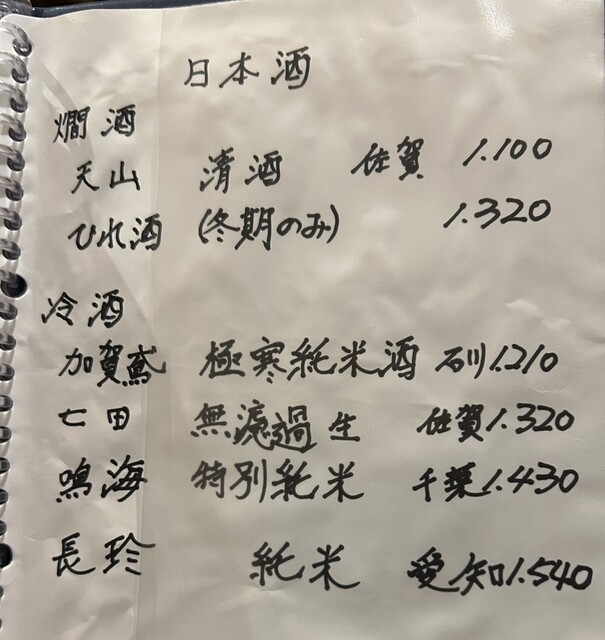 日本酒
燗酒
天山 清酒 佐賀 1.100
ひれ酒 (冬期のみ) 1.320
冷酒
加賀鳶 極寒純米酒 石川 1.210
七田 無濾過生 佐賀 1.320
鳴海 特別純米 千葉 1.430
長珍 純米 愛知 1.540